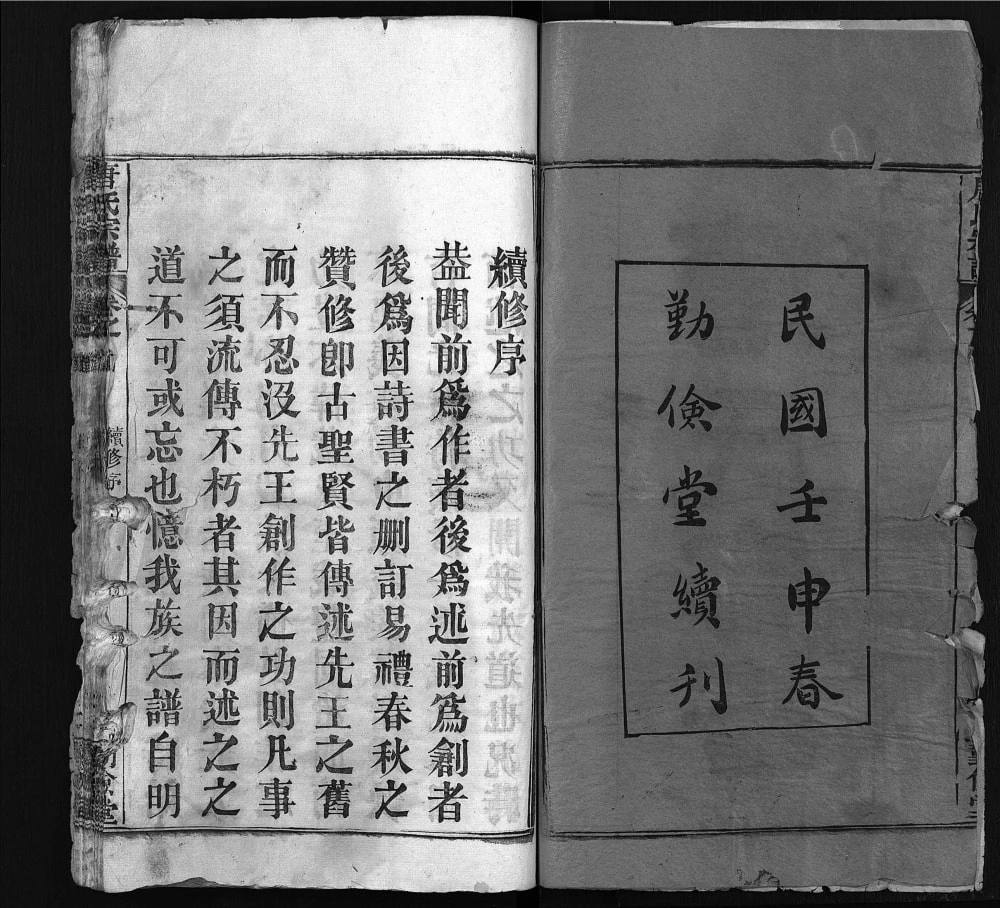 民國壬申春
勤儉堂續刊
續修序
葢聞前爲作者後爲述前爲創者
後爲因詩書之删訂易禮春秋之
贊修卽古聖賢皆傳述先王之舊
而不忍沒先王創作之功則凡事
之須流傳不朽者其因而述之之
道不可或忘也憶我族之譜自明
唐氏宗譜
卷之
續修序
勤儉堂